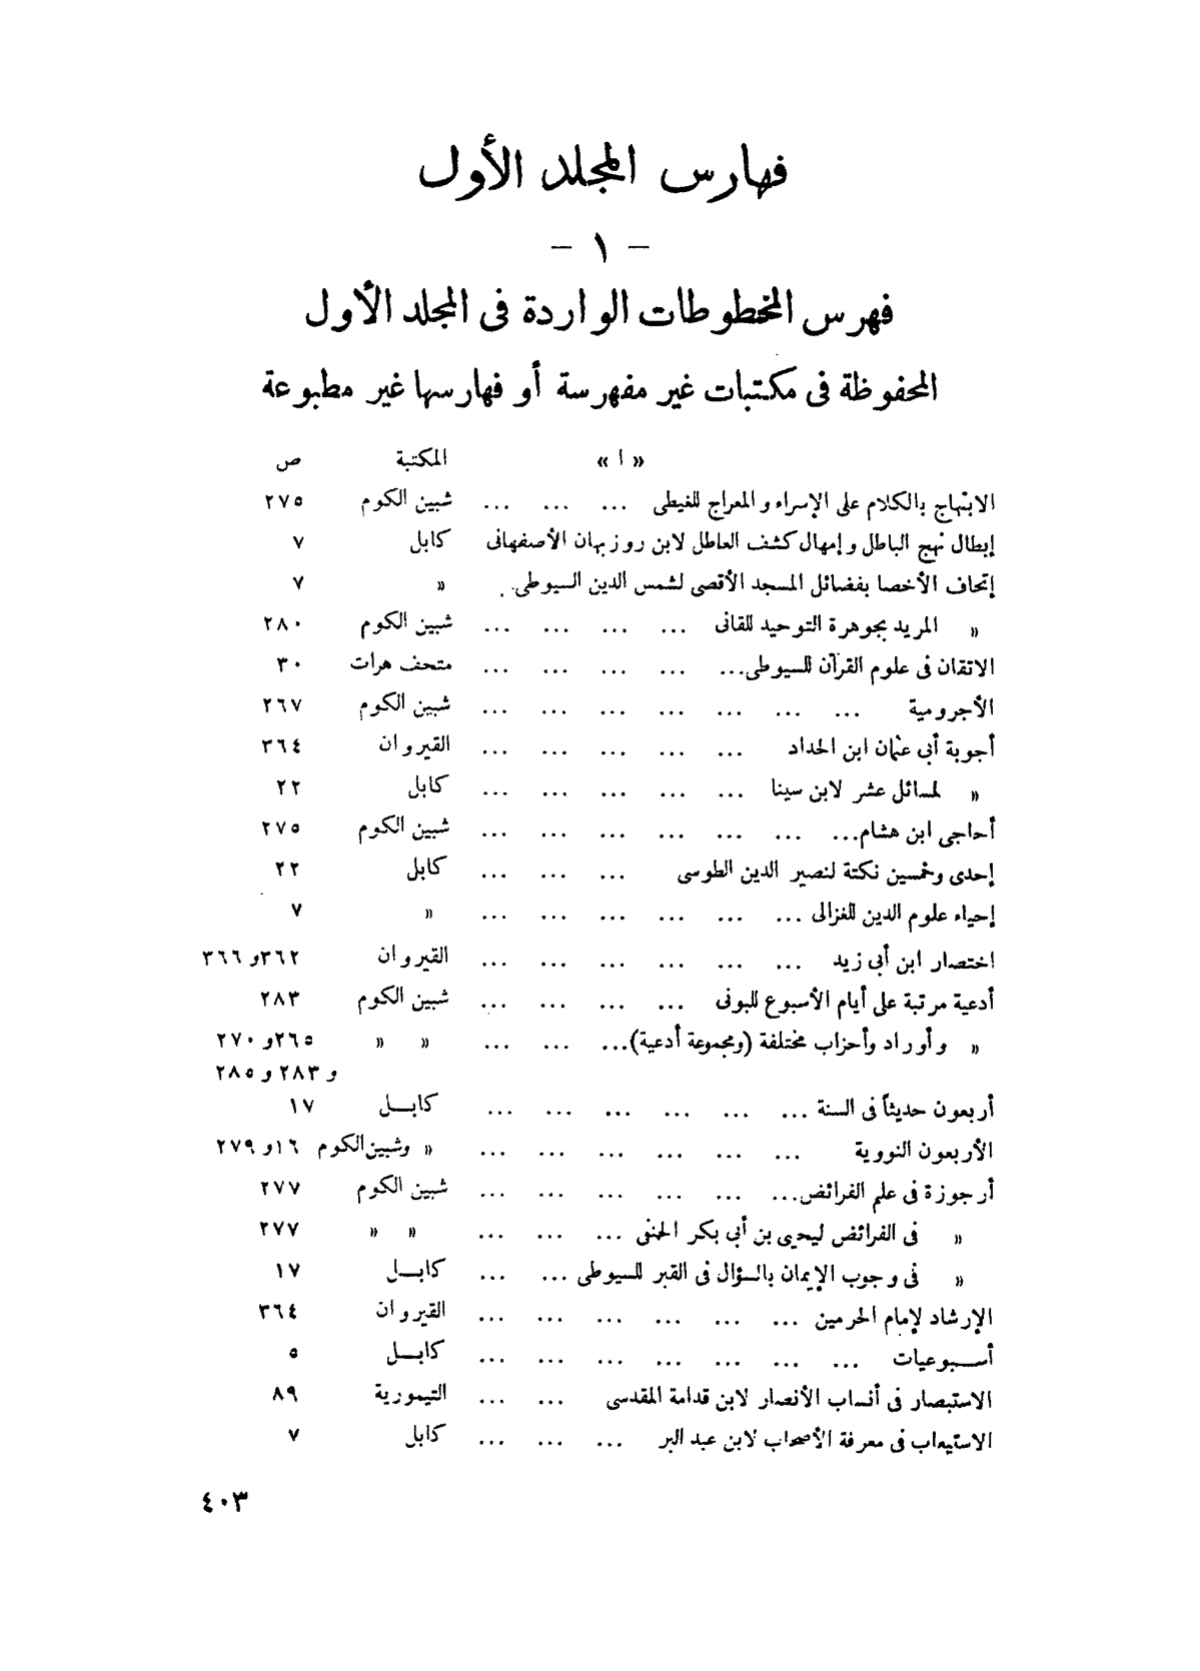 فهارس المجلد الأول
– ١ –
فهرس المخطوطات الواردة فى المجلد الأول
المحفوظة فى مكتبات غير مفهرسة أو فهارسها غير مطبوعة
« ا » المكتبة ص
الابتهاج بالكلام على الإسراء والمعراج للغيطى ... ... ... شبين الكوم ٢٧٥
إبطال نهج الباطل وإمهال كشف العاطل لابن روزبهان الأصفهانى كابل ٧
إتحاف الأخصا بفضائل المسجد الأقصى لشمس الدين السيوطى . » ٧
» المريد بجوهرة التوحيد للقانى ... ... ... ... شبين الكوم ٢٨٠
الاتقان فى علوم القرآن للسيوطى... ... ... ... ... متحف هرات ٣٠
الأجرومية ... ... ... ... ... ... ... شبين الكوم ٢٦٧
أجوبة أبى عثمان ابن الحداد ... ... ... ... ... القيروان ٣٦٤
» لمسائل عشر لابن سينا ... ... ... ... ... كابل ٢٢
أحاجى ابن هشام... ... ... ... ... ... ... شبين الكوم ٢٧٥
إحدى وخمسين نكتة لنصير الدين الطوسى ... ... ... كابل ٢٢
إحياء علوم الدين للغزالى ... ... ... ... ... ... » ٧
اختصار ابن أبى زيد ... ... ... ... ... ... القيروان ٣٦٢و ٣٦٦
أدعية مرتبة على أيام الأسبوع للبونى ... ... ... ... شبين الكوم ٢٨٣
» وأوراد وأحزاب مختلفة (ومجموعة أدعية)... ... ... » » ٢٦٥و ٢٧٠
و ٢٨٣ و ٢٨٥
أربعون حديثاً فى السنة ... ... ... ... ... ... كابـــل ١٧
الأربعون النووية ... ... ... ... ... ... » وشبين الكوم ١٦و ٢٧٩
أرجوزة فى علم الفرائض... ... ... ... ... ... شبين الكوم ٢٧٧
» فى الفرائض ليحيى بن أبى بكر الحنفى ... ... ... » » ٢٧٧
» فى وجوب الإيمان بالسؤال فى القبر للسيوطى ... ... كابـــل ١٧
الإرشاد لإمام الحرمين ... ... ... ... ... ... القيروان ٣٦٤
أسـبوعيات ... ... ... ... ... ... ... كابـــل ٥
الاستبصار فى أنساب الأنصار لابن قدامة المقدسى ... ... التيمورية ٨٩
الاستيعاب فى معرفة الأصحاب لابن عبد البر ... ... ... كابل ٧
٤٠٣